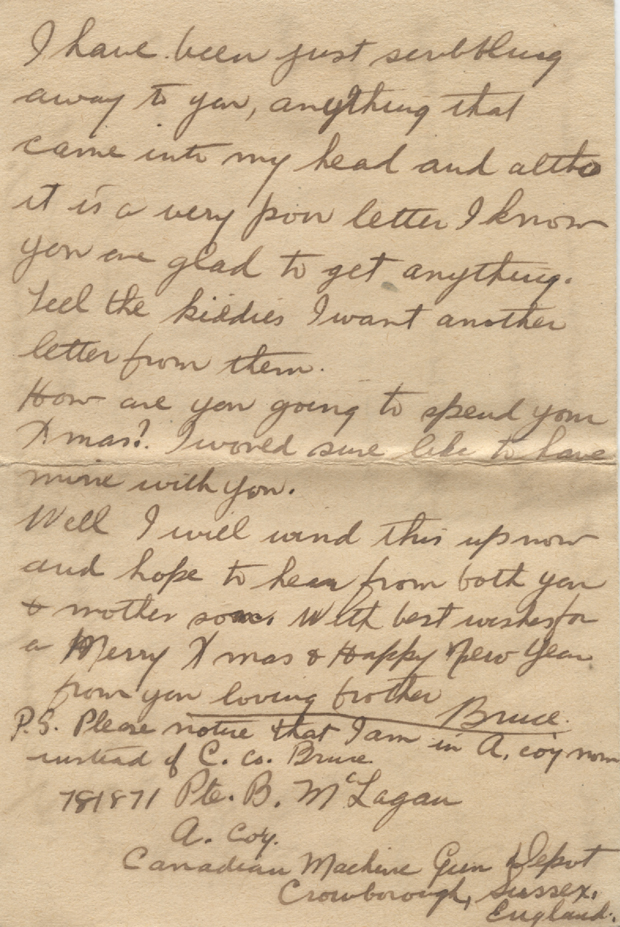 I have been just scribbling
away to you, anything that
came into my head and altho
it is a very poor letter I know
you are glad to get anything.
Tell the kiddies I want another
letter from them.
How are you going to spend your
Xmas? I would sure like to have
mine with you.
Well I will wind this up now
and hope to hear from both you
& mother soon. With best wishes for
a Merry Xmas & Happy New Year
from you loving brother
Bruce.
P.S. Please notice that I am in A. coy now
instead of C. Co. Bruce
781871 Pte. B. McLagan
A. Coy.
Canadian Machine Gun Depot
Crowborough, Sussex,
England.